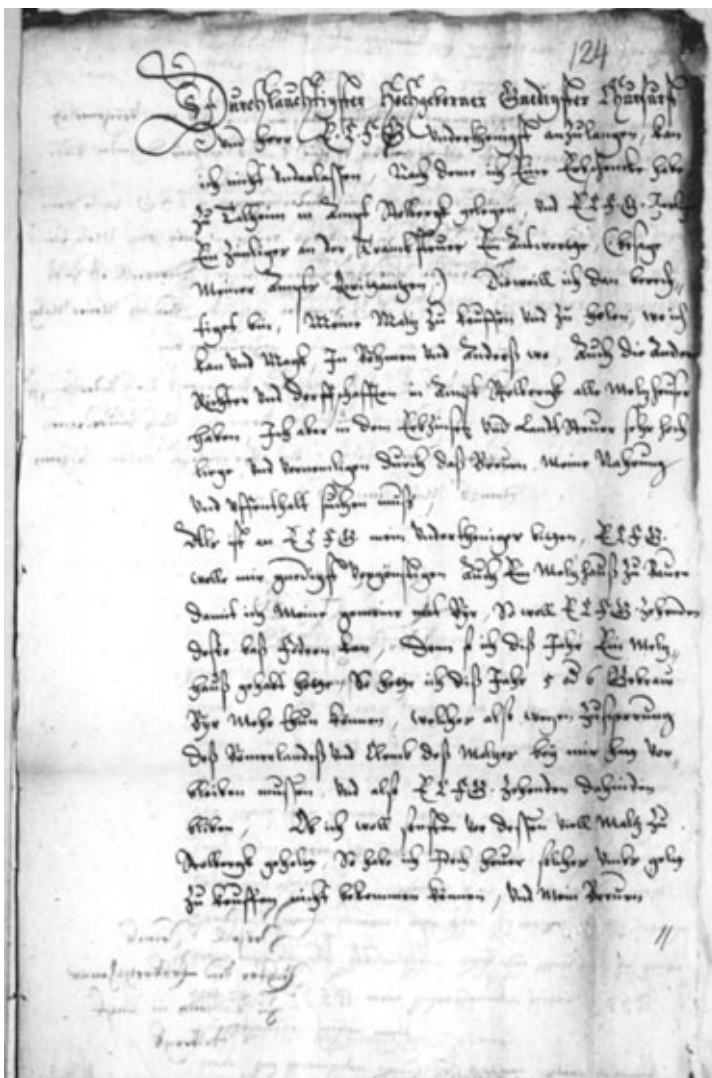 124
Durchlauchtigster Hochgeborner Gnedigster Churfurst
Vnd Herr E C F G Vnderthenigst anzulangen, kan
ich nicht Vnderlassen, Nach deme ich Eine Erbschencke habe
zu Talheim in Ampt Stolbergk gelegen, vnd E C F G
Ein an der Trancksteuer (besage
Meiner Ampts Quittantzen) Dieweill ich dan berech=
tiget bin, Meine Maltz zu kauffen vnd zu holen, wo ich
kan vnd Magk In Böhmen vnd Anderß wo, Auch die Andern
Richter vnd Dorffschafften in Ampt Stolbergk alle Meltzheuser
haben Ich aber in dem Erbzinsen vnd Landt Steuer sehr hoch
liege, vnd vornemligen durch daß Breuen, Meine Nahrung
vnd Vffenthalt suchen muß,
Alß ist an E C F G mein Vndertheniger bitten, E C F G
wolle mir gnedigst Vergönstigen Auch Ein Meltzhauß zu Bauen
damit ich Meine gemeine Byr, So woll E C F G Zehenden
deste baß födern kan, Denn so ich diß Jahr Ein Meltz=
hauß gehabt hette, So hette ich diß Jahr 5 ad 6 Gebreu
Byr Mehr thun können, welches alß wegen Zusperrung
deß Bömerlandeß vnd deß Maltzes bey mir hat vor
bleiben mussen, vnd alß E C F G Zehenden dahinden
blieben, Ob ich woll sonsten vor dessen viell Maltz zu
Stolbergk geholet, So habe ich Doch heuer solches vmbs geldt
zu kauffen nicht bekommen können, Vnd Mein Breuen